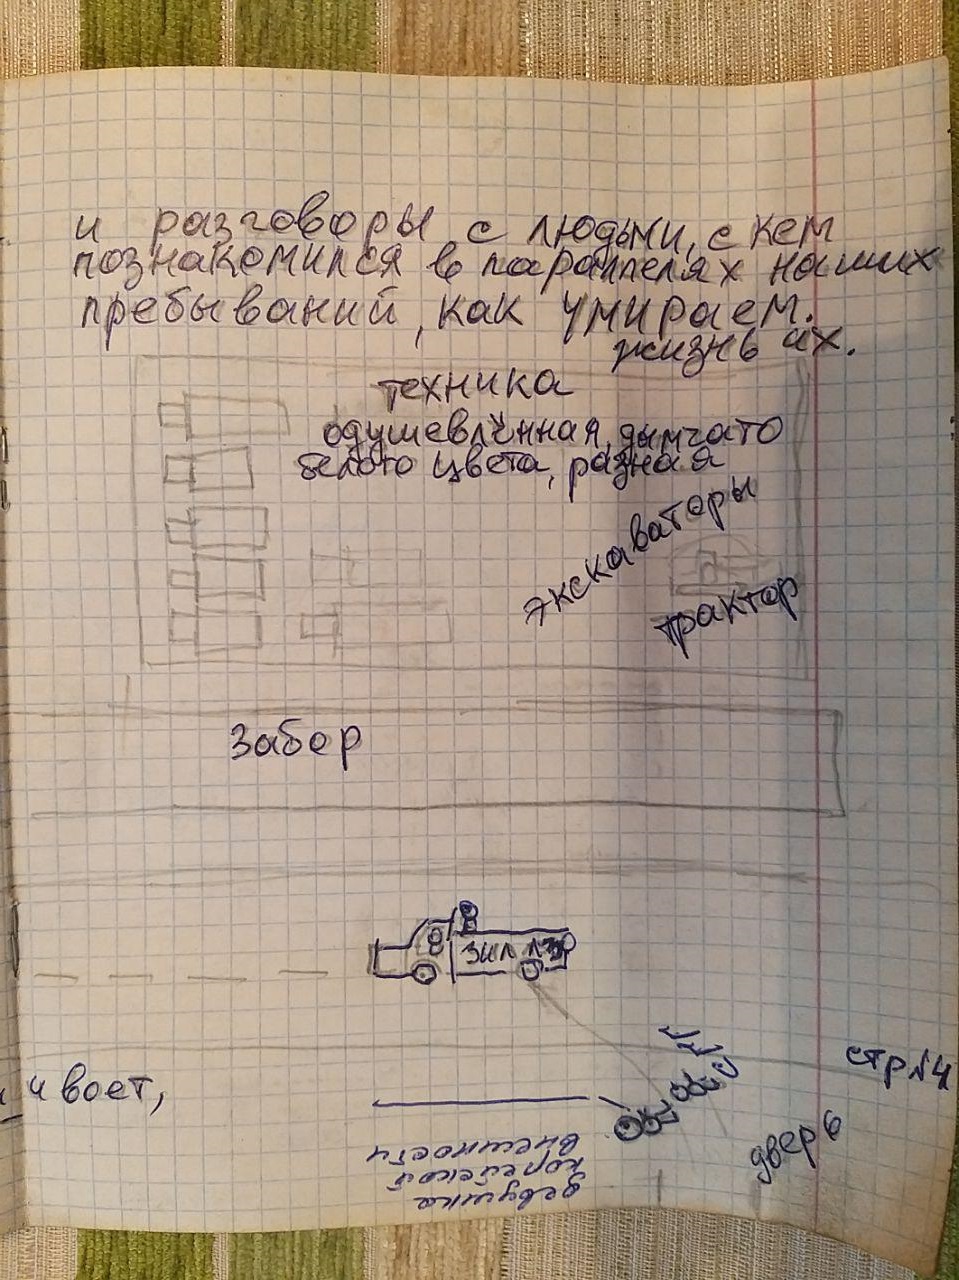 и разговоры с людьми, с кем
познакомился в параллелях наших
пребываний, как умираем.
жизнь их.
техника
одушевлённая, дымчато
белого цвета, разная
экскаваторы
трактор
забор
ЗИЛ
стр №4
и воет,
дверь
девушка
корейской
внешности